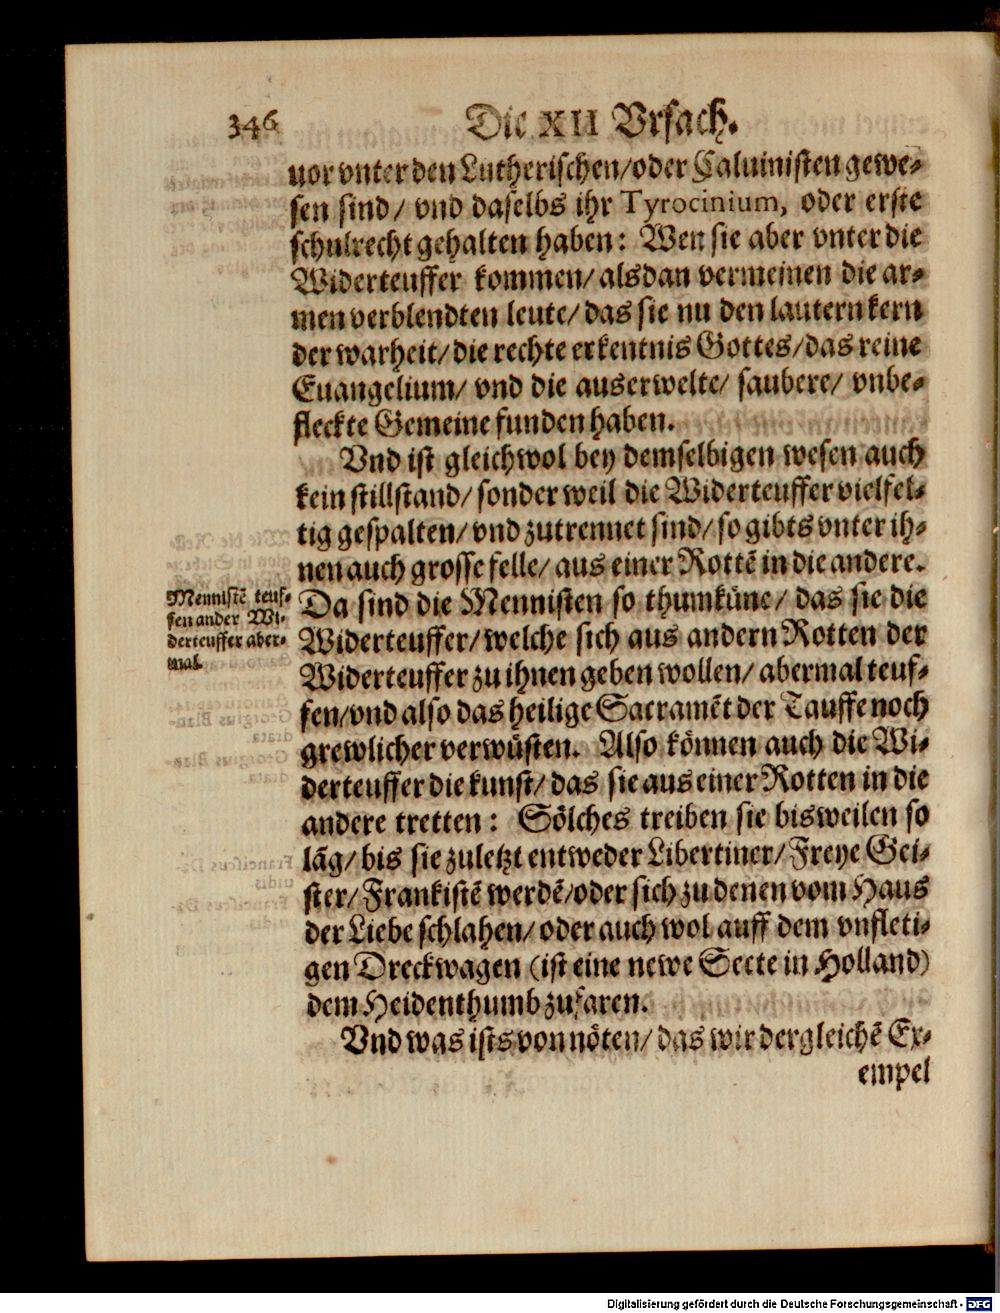 346 Die XII Vrsach.
uor vnter den Lutherischen/oder Caluinisten gewe-
sen sind/ vnd daselbs ihr Tyrocinium, oder erste
schulrecht gehalten haben: Wen sie aber vnter die
Widerteuffer kommen/ alsdan vermeinen die ar-
men verblendten leute/ das sie nu den lautern kern
der warheit/ die rechte erkentnis Gottes/ das reine
Euangelium/ vnd die auserwelte/ saubere/ vnbe-
fleckte Gemeine funden haben.
Vnd ist gleichwol bey demselbigen wesen auch
kein stillstand/ sonder weil die Widerteuffer vielfel-
tig gespalten/ vnd zutrennet sind/ so gibts vnter ih-
nen auch grosse felle/ aus einer Rottē in die andere.
Da sind die Mennisten so thumküne/ das sie die
Widerteuffer/ welche sich aus andern Rotten der
Widerteuffer zu ihnen geben wollen/ abermal teuf-
fen/ vnd also das heilige Sacramēt der Tauffe noch
grewlicher verwüsten. Also können auch die Wi-
derteuffer die kunst/ das sie aus einer Rotten in die
andere tretten: Sölches treiben sie bisweilen so
lāg/ bis sie zuletzt entweder Libertiner/ Freye Gei-
ster/ Frankistē werdē/ oder sich zu denen vom Haus
der Liebe schlahen/ oder auch wol auff dem vnfleti-
gen Dreckwagen (ist eine newe Secte in Holland)
dem Heidenthumb zufaren.
Vnd was ists von nöten/ das wir dergleichē Ex-
empel
Mennistē teuf-
fen ander Wi-
derteuffer aber-
mal.
Digitalisierung gefördert durch die Deutsche Forschungsgemeinschaft - DFG